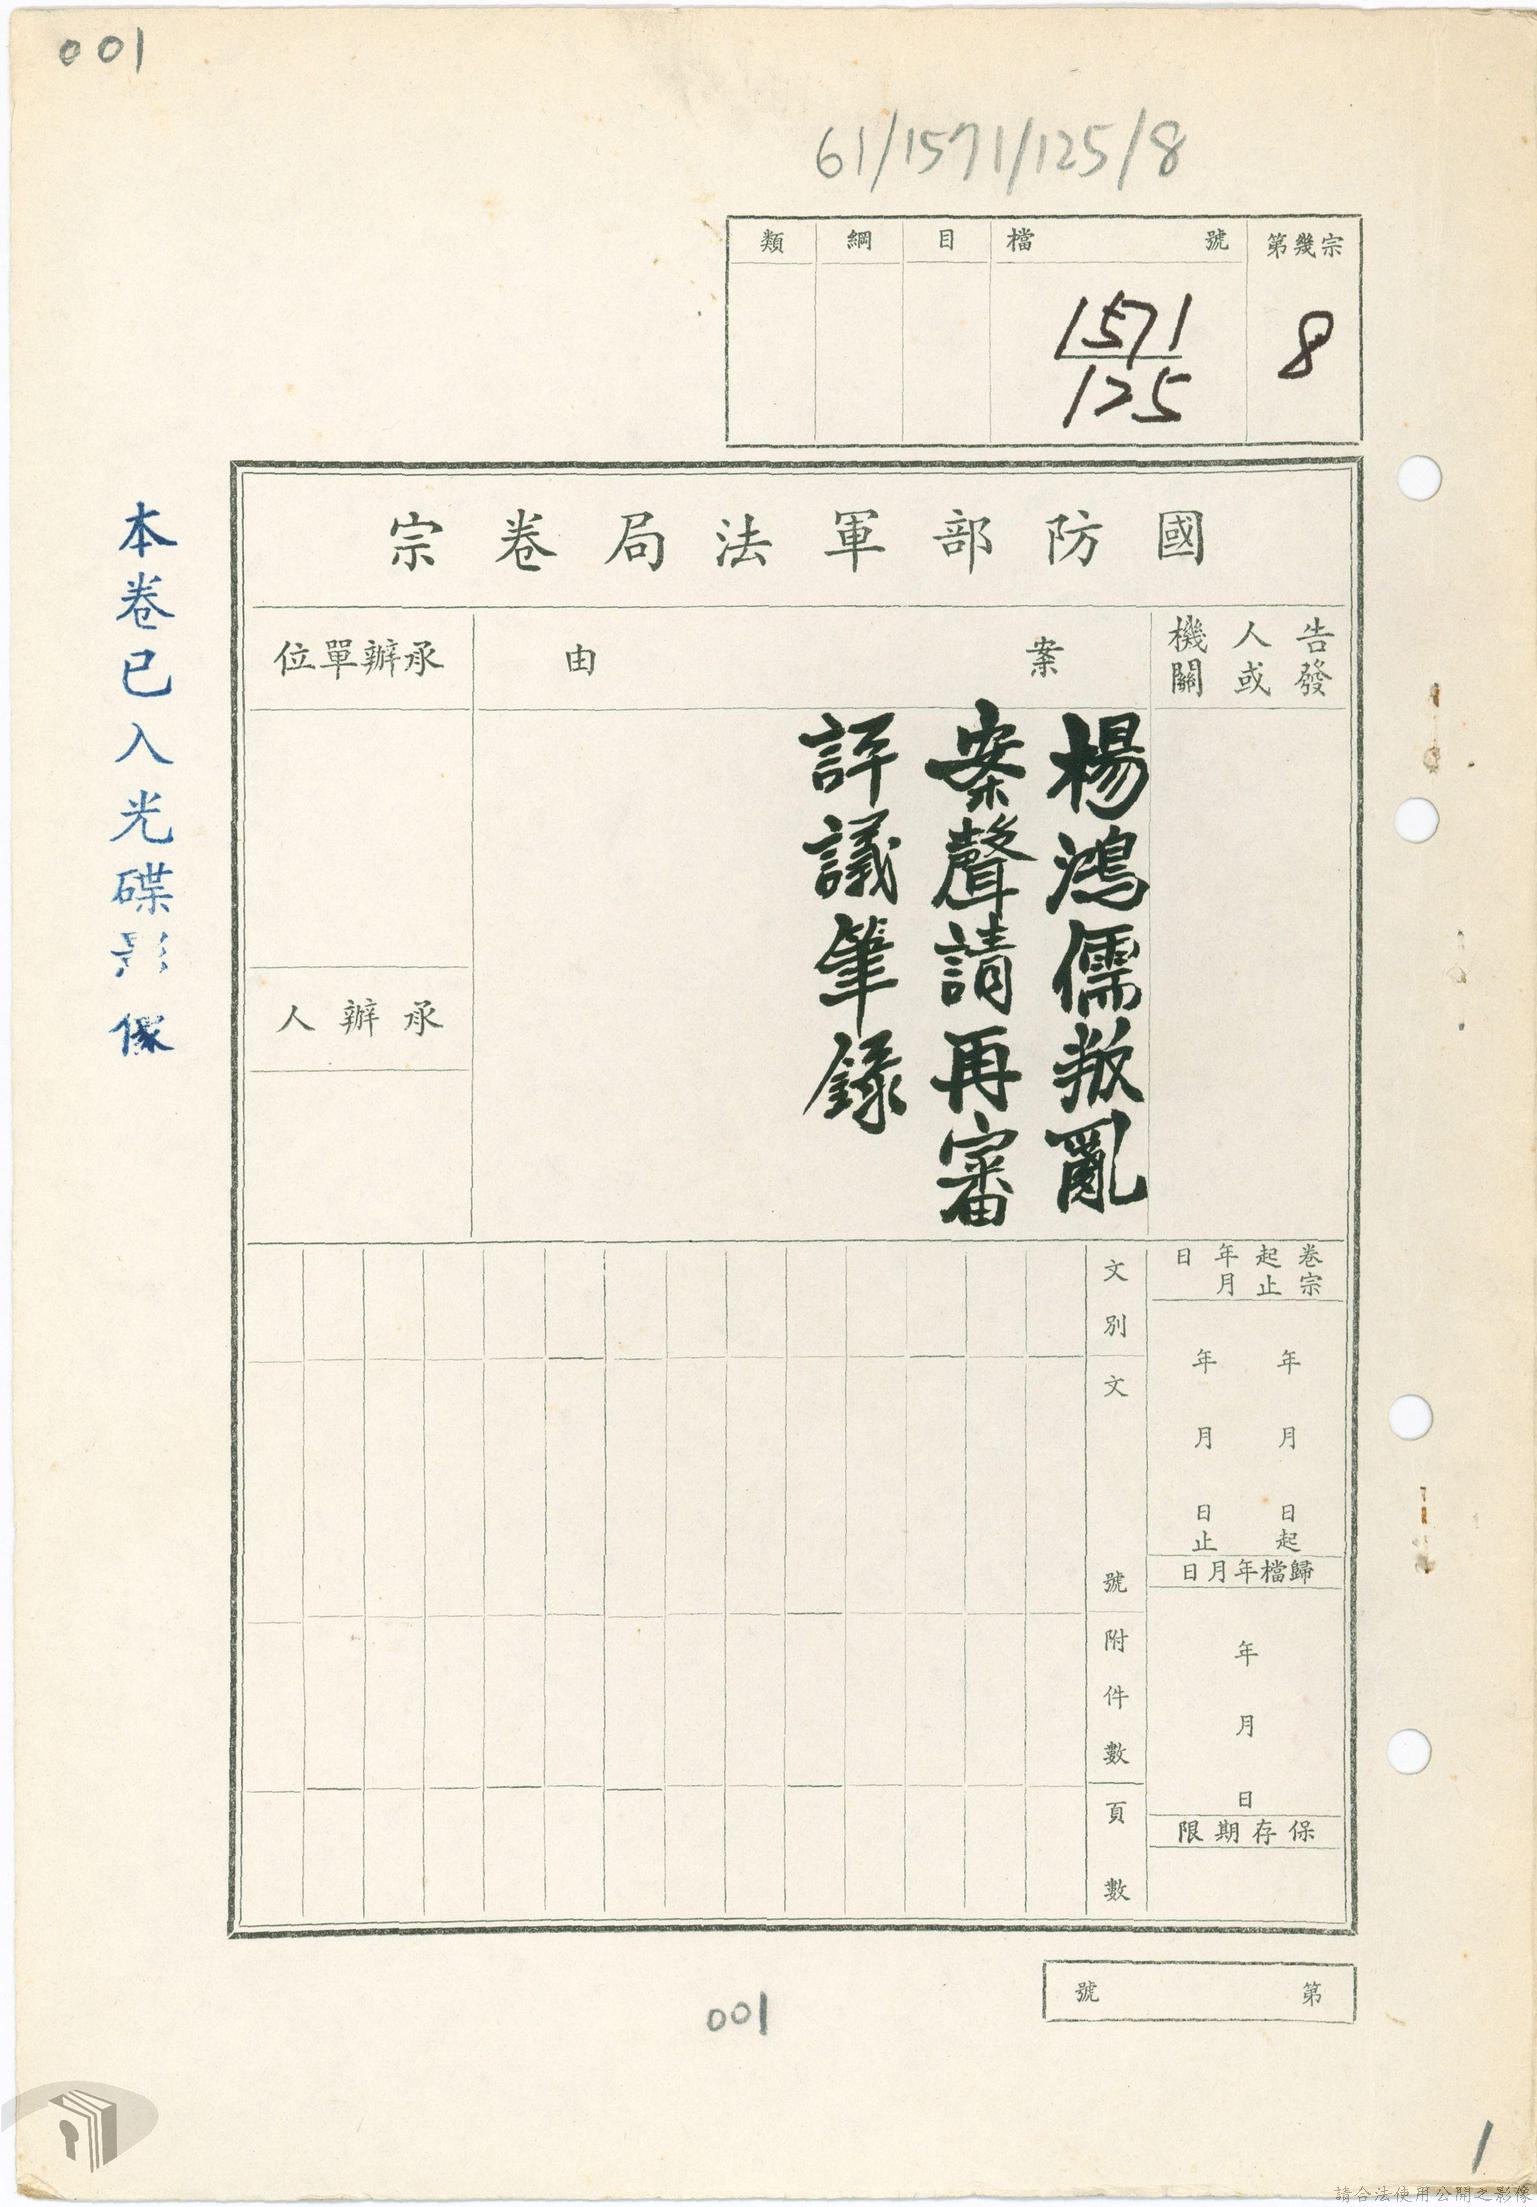 001
61/1571/125/8
第幾宗
8
檔號
1571
125
目
綱
類
國防部軍法局卷宗
告發
人或
機關
案由
承辦單位
楊鴻儒叛亂
案聲請再審
評議筆錄
承辦人
卷宗
起止
年月
日
年月日起
年月日止
歸檔年月日
年月日
保存期限
文別
文號
附件數
頁數
本卷已入光碟影像
第號
001
1
請合法使用公開之影像